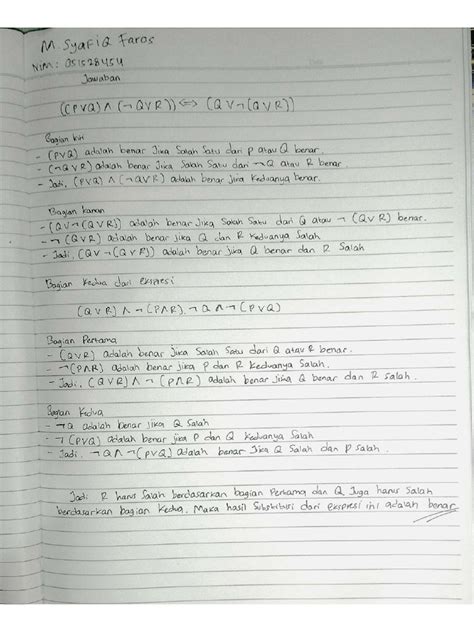 M. SyaFiQ Faros
NIM: 051528454
Jawaban
((PVQ) ∧ (¬QVR)) ⇔ (QV¬(QVR))
Bagian kiri
- (PVQ) adalah benar Jika Salah Satu dari P atau Q benar.
- (¬QVR) adalah benar Jika Salah Satu dari ¬Q atau R benar.
- Jadi, (PVQ) ∧ (¬QVR) adalah benar jika keduanya benar.
Bagian kanan
- (QV¬(QVR)) adalah benar Jika Salah Satu dari Q atau ¬(QVR) benar.
- ¬(QVR) adalah benar jika Q dan R keduanya Salah
- Jadi, (QV¬(QVR)) adalah benar jika Q benar dan R Salah
Bagian kedua dari ekspresi
(QVR) ∧ ¬(P∧R), ¬Q ∧ ¬(PVQ)
Bagian Pertama
- (QVR) adalah benar Jika Salah Satu dari Q atau R benar.
- ¬(P∧R) adalah benar jika P dan R keduanya Salah.
- Jadi, (QVR) ∧ ¬(P∧R) adalah benar jika Q benar dan R Salah.
Bagian Kedua
- ¬Q adalah benar jika Q Salah
- ¬(PVQ) adalah benar jika P dan Q keduanya Salah
- Jadi, ¬Q ∧ ¬(PVQ) adalah benar Jika Q Salah dan P salah.
Jadi R harus Salah berdasarkan bagian Pertama dan Q Juga harus Salah
berdasarkan bagian kedua. Maka hasil Substitusi dari ekspresi ini adalah benar